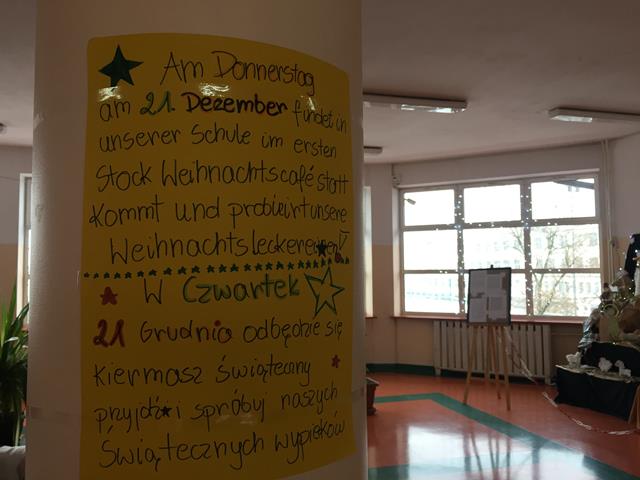 Am Donnerstag
am 21. Dezember findet in
unserer Schule im ersten
Stock Weihnachtscafé statt
Kommt und probiert unsere
Weihnachtsleckereien!
W Czwartek
21 Grudnia odbędzie się
kiermasz świąteczny
przyjdź i spróbuj naszych
Świątecznych wypieków